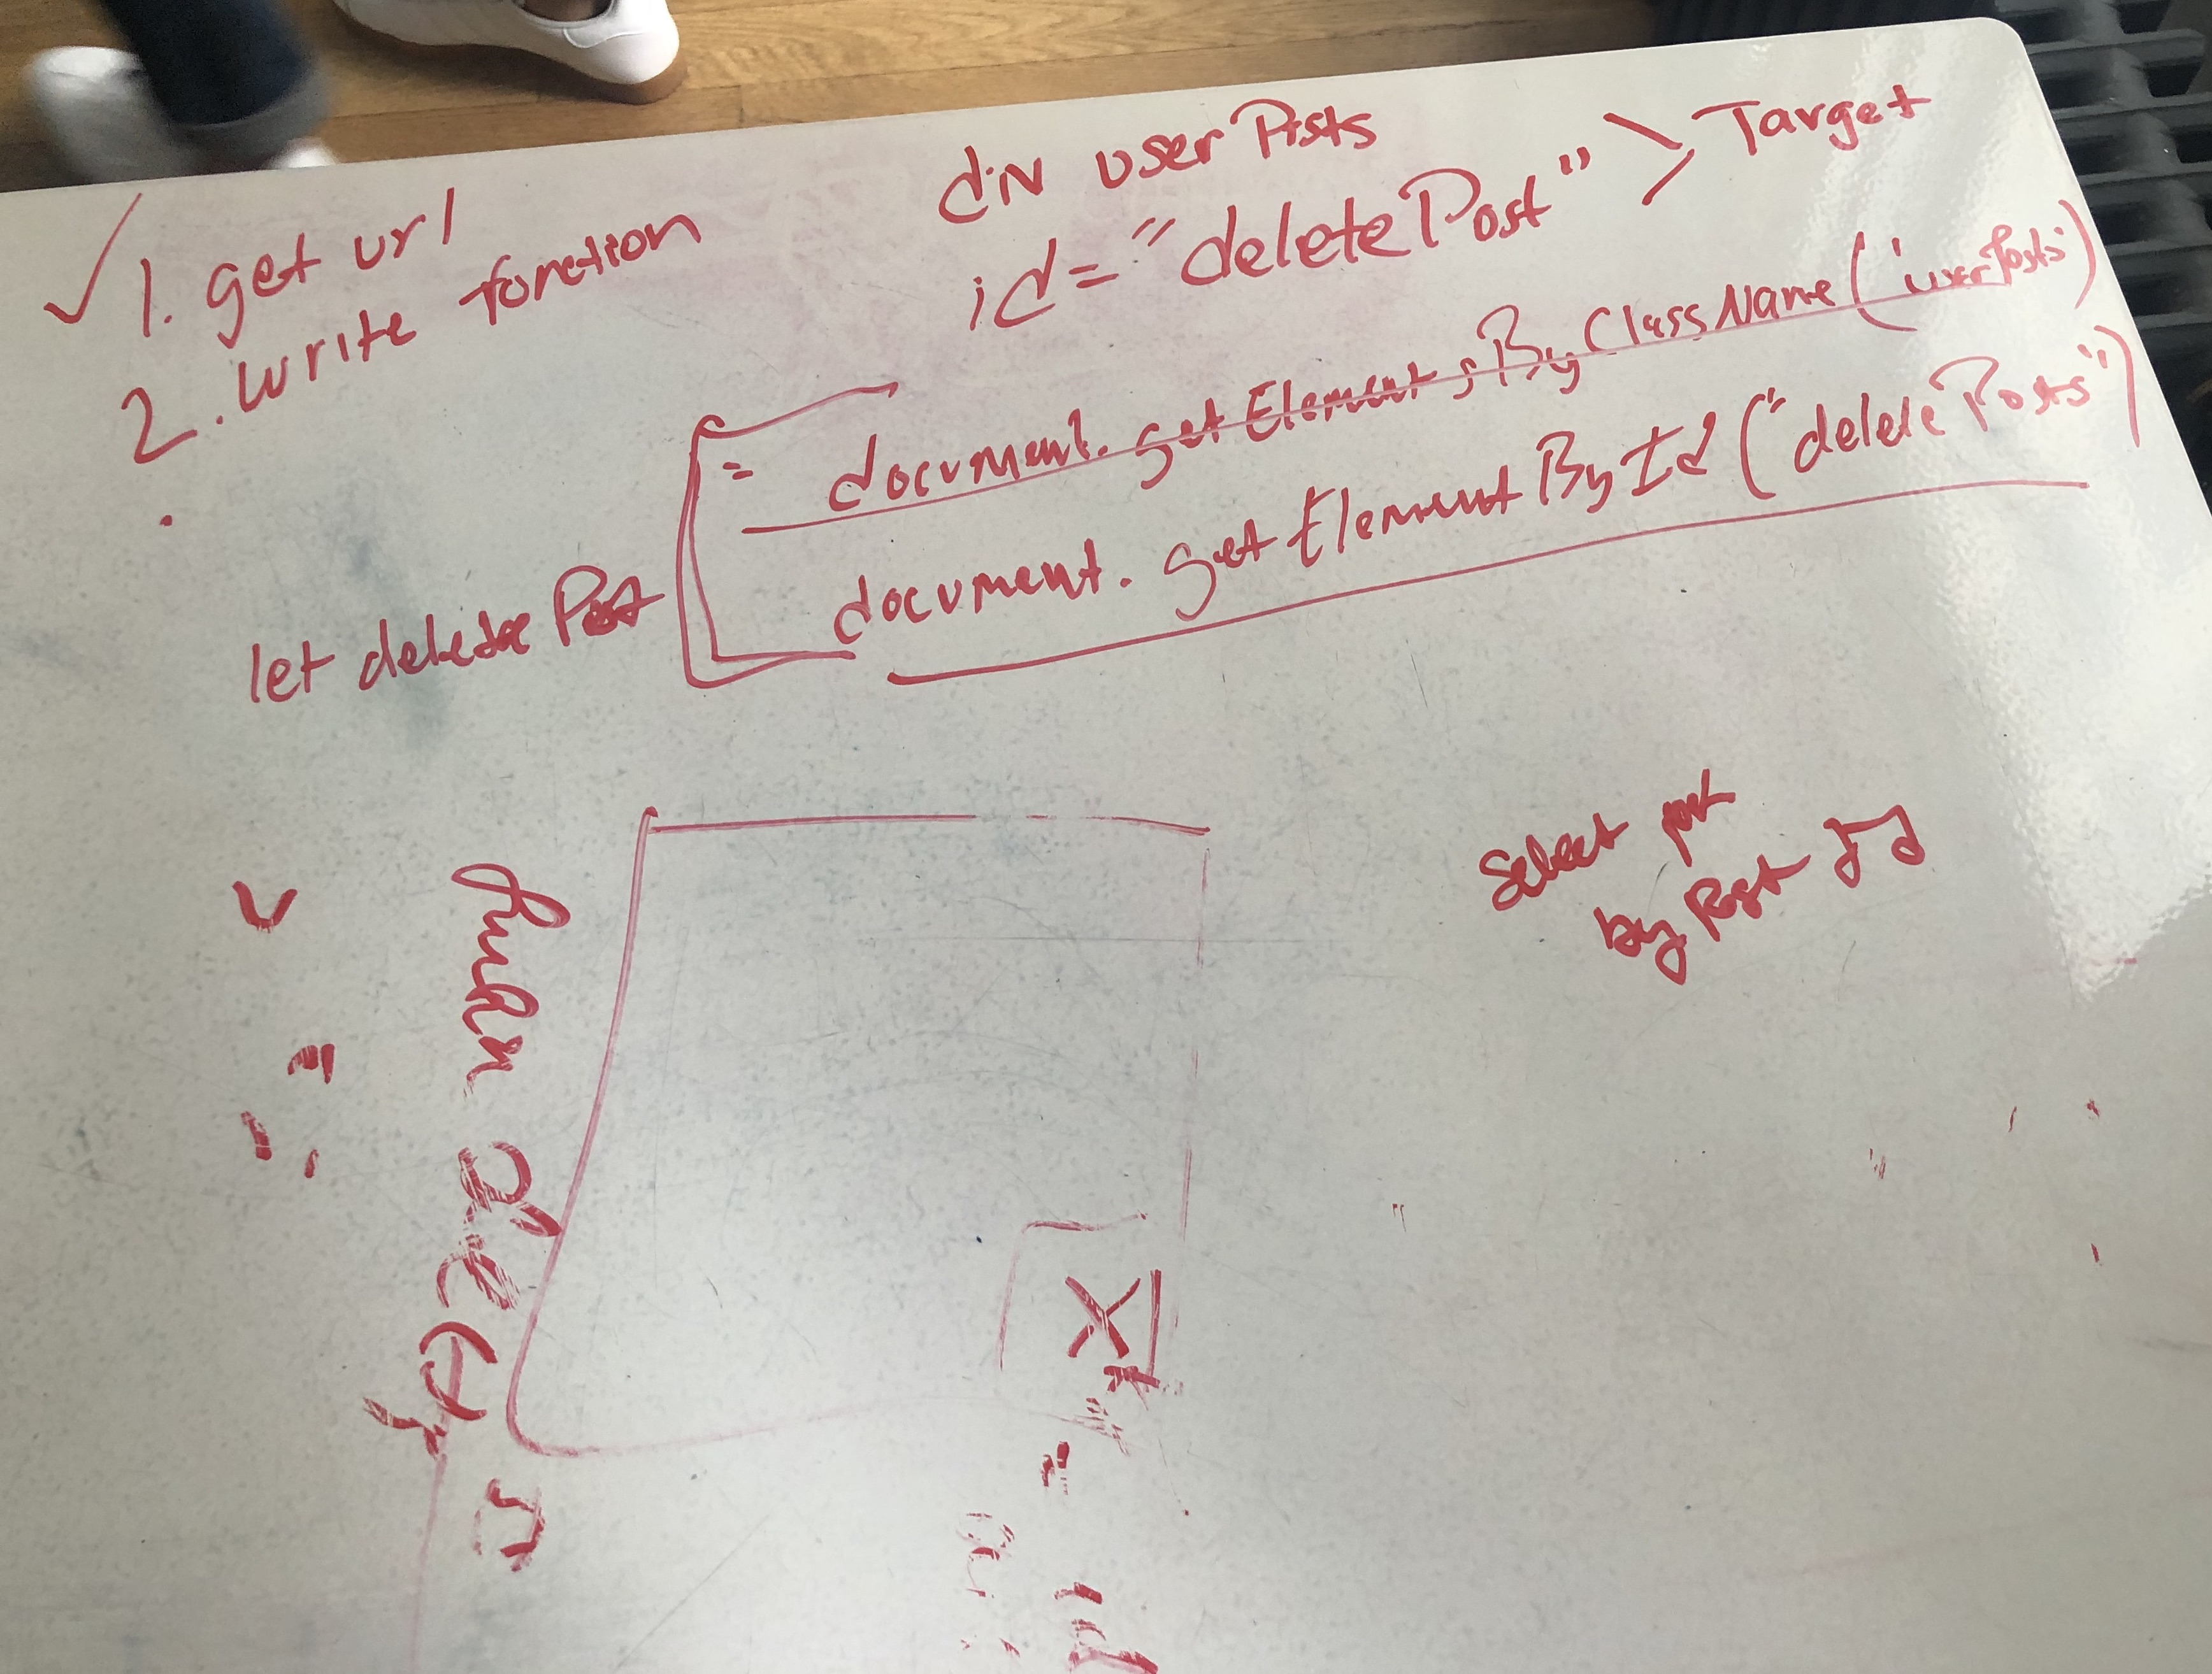 ✓ 1. get url
2. write function
div userPosts
id="deletePost" > Target
= document.getElementsByClassName('userPosts')
document.getElementById("deletePosts")
let delete Post
Select post
by Post Id
X